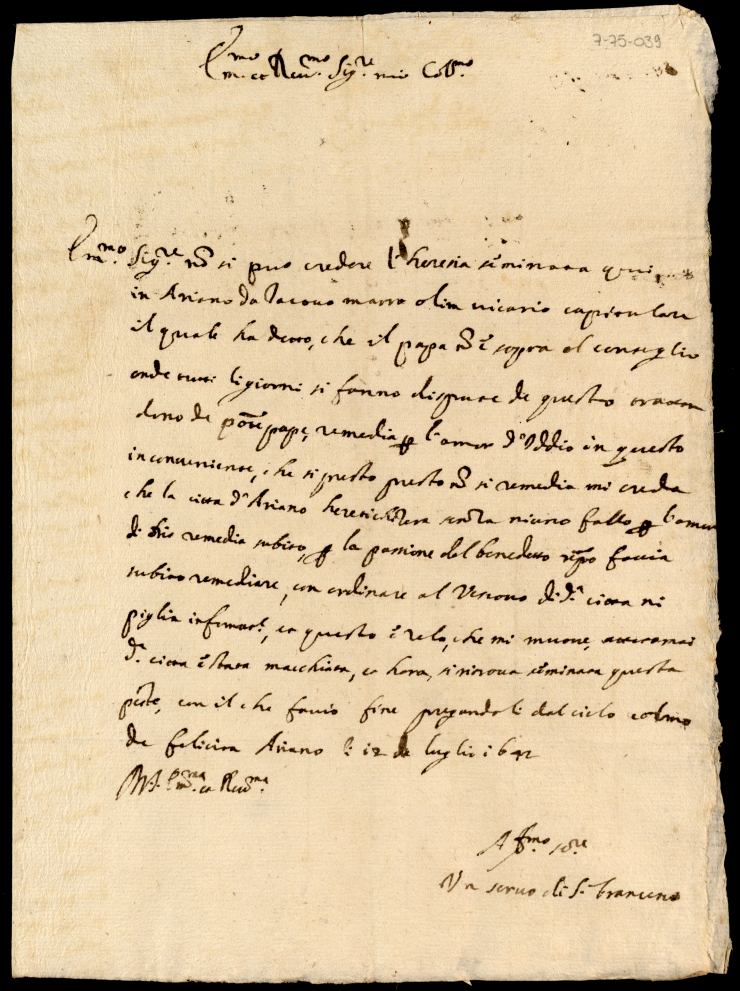 7-75-039
Em.mo et Rev.mo Sig.re mio Coll.mo
Em.mo Sig.re nō si puo credere l'heresia seminata qui
in Ariano da Iacovo marra olim vicario capitulare
il quale ha detto, che il papa nō è sopra al conseglio
onde tutti li giorni si fanno dispute de questo
de pōte pape, remedia per l'amor d'Iddio in questo
inconveniente, che si presto presto nō si remedia mi creda
che la citta d'Ariano senza niuno fallo per l'amor
di remedia subito, per la passione del benedetto faccia
subito remediare, con ordinare al Vescovo di d.a citta ni
piglia informat., et questo è zelo, che mi muove,
d.a citta è stata macchiata, et hora, si ritrova seminata questa
peste, con il che faccio fine pregandoli dal cielo colmo
de felicita Ariano li 12 de luglio 1642
D. V. S. Em.ma et Rev.ma
Aff.mo ser.re
Un servo di S. Francesco